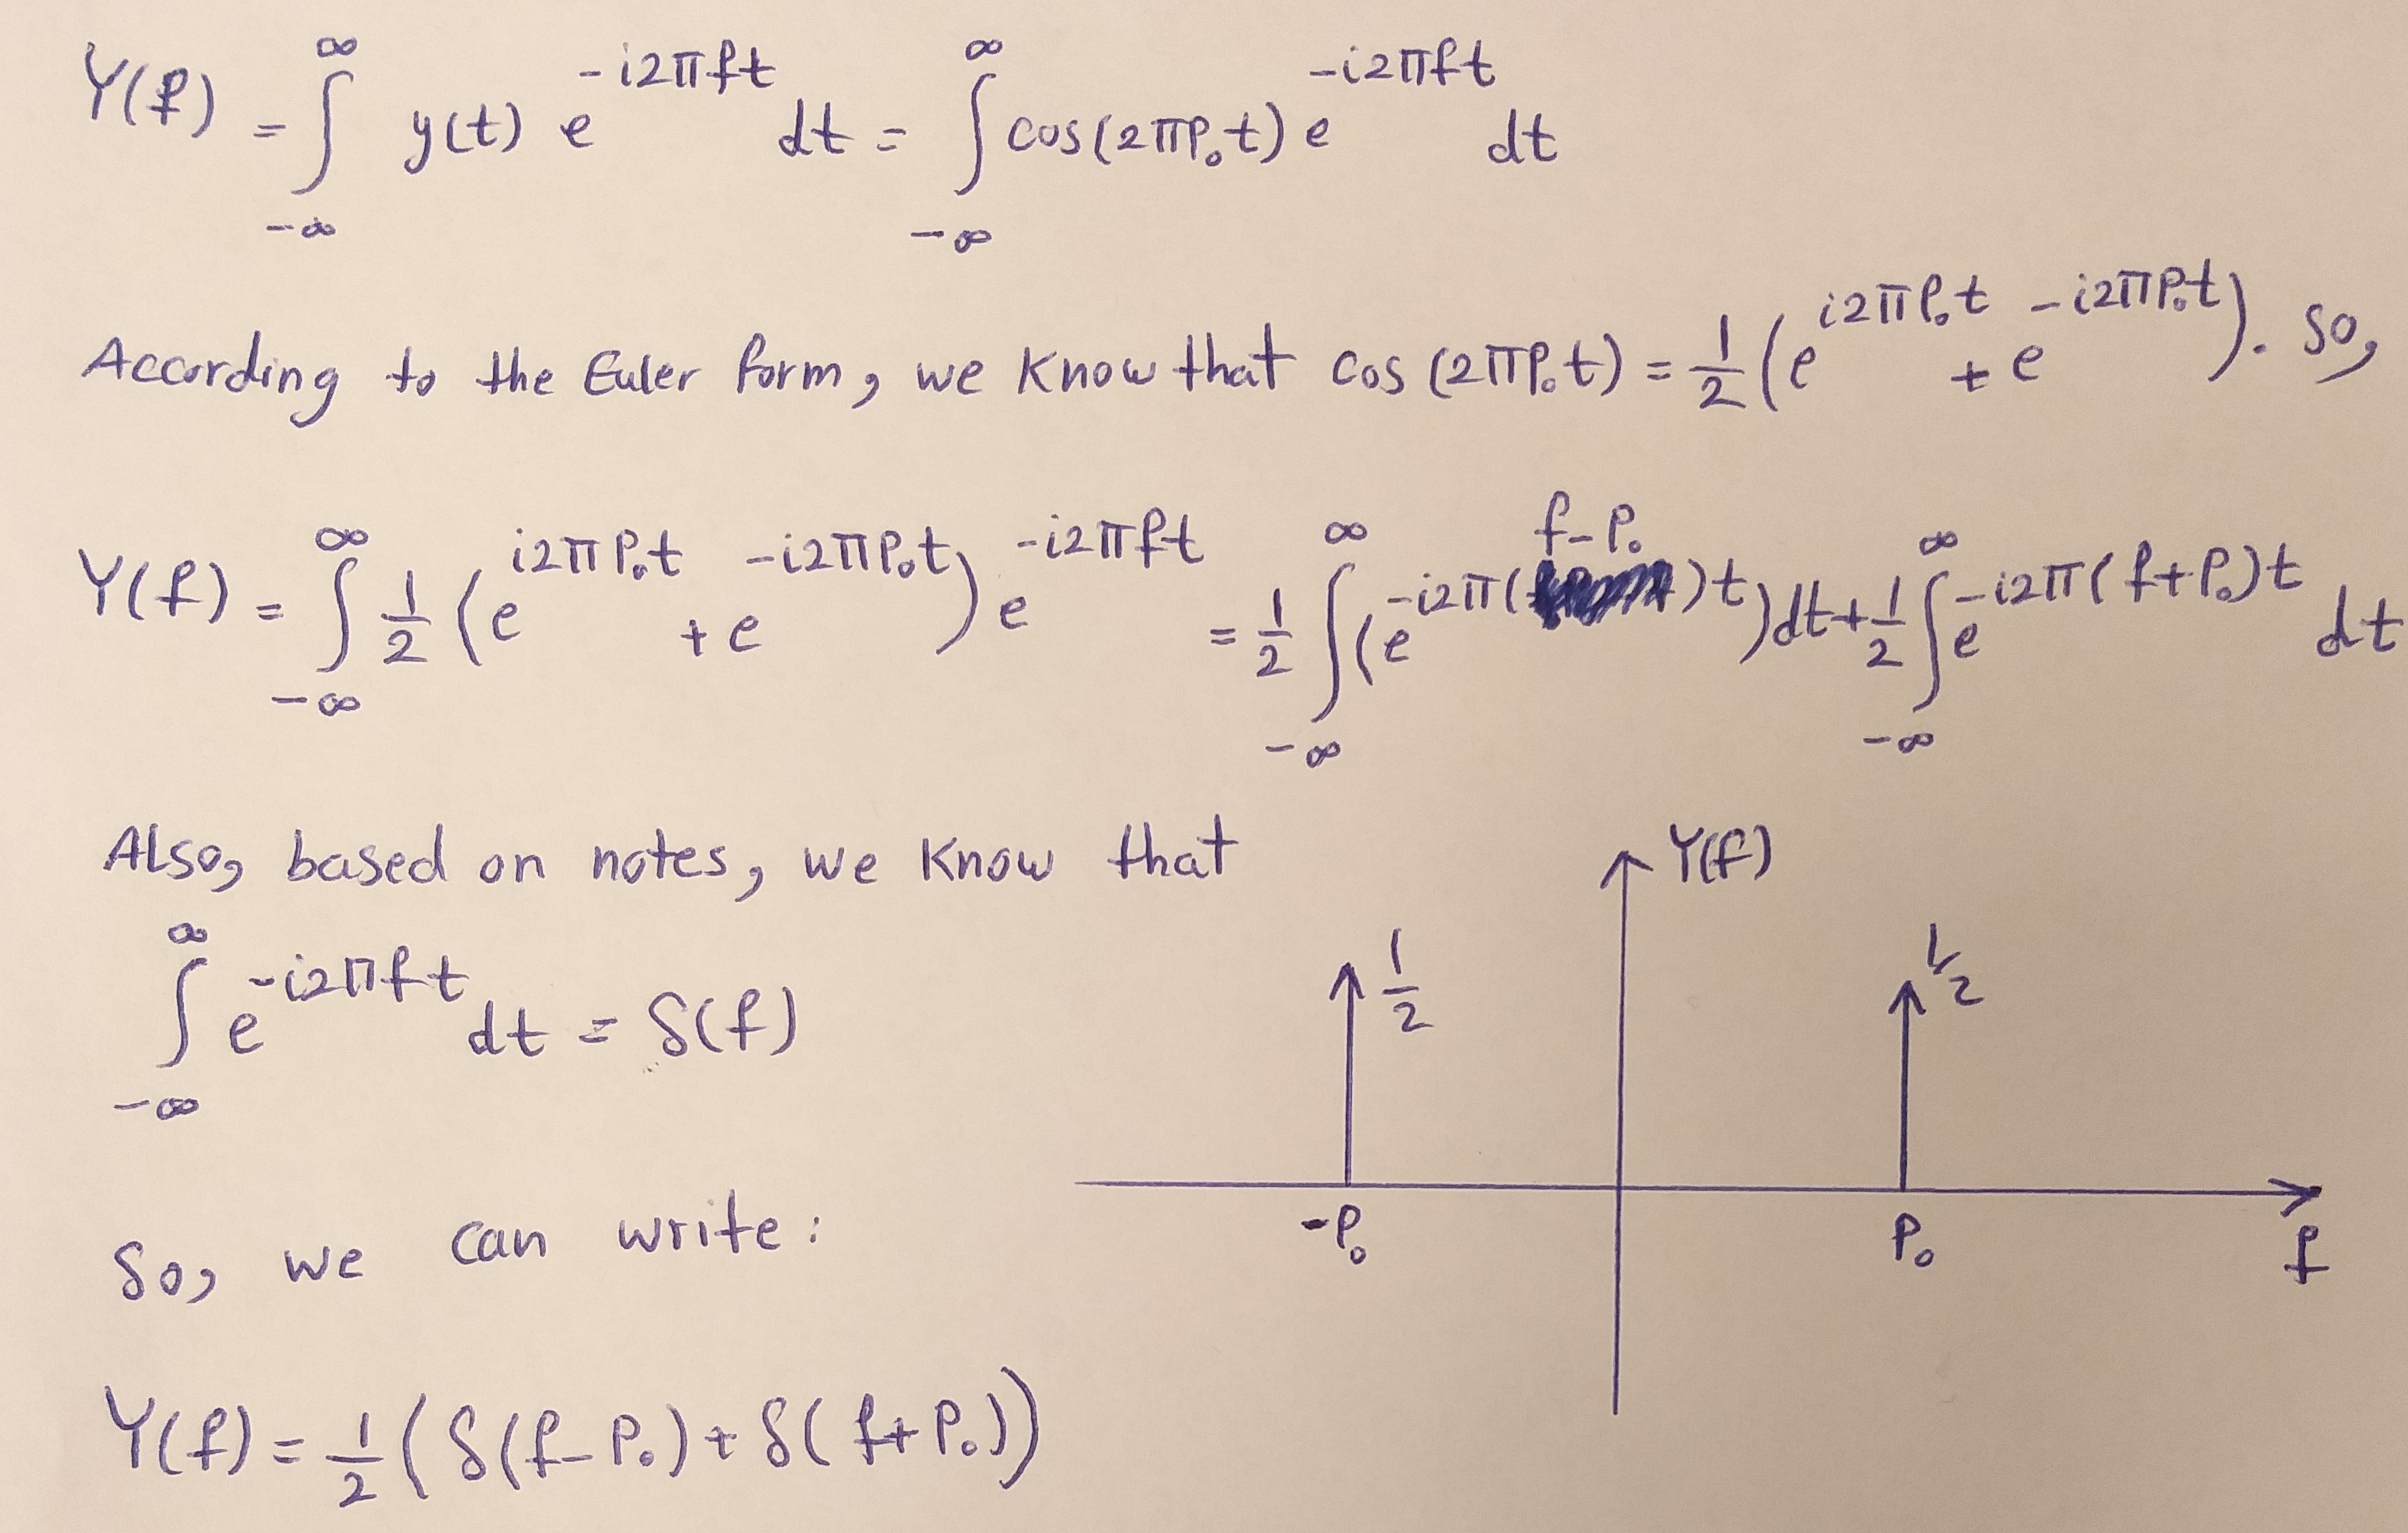 Y(f) = ∫_{-∞}^{∞} y(t) e^{-i2πft} dt = ∫_{-∞}^{∞} cos(2πP₀t) e^{-i2πft} dt
According to the Euler form, we know that cos(2πP₀t) = 1/2 (e^{i2πP₀t} + e^{-i2πP₀t}). So,
Y(f) = ∫_{-∞}^{∞} 1/2 (e^{i2πP₀t} + e^{-i2πP₀t}) e^{-i2πft} = 1/2 ∫_{-∞}^{∞} (e^{-i2π(f-P₀)t}) dt + 1/2 ∫_{-∞}^{∞} e^{-i2π(f+P₀)t} dt
Also, based on notes, we know that
∫_{-∞}^{∞} e^{-i2πft} dt = δ(f)
So, we can write:
Y(f) = 1/2 (δ(f-P₀) + δ(f+P₀))
Y(f)
1/2
1/2
-P₀
P₀
f